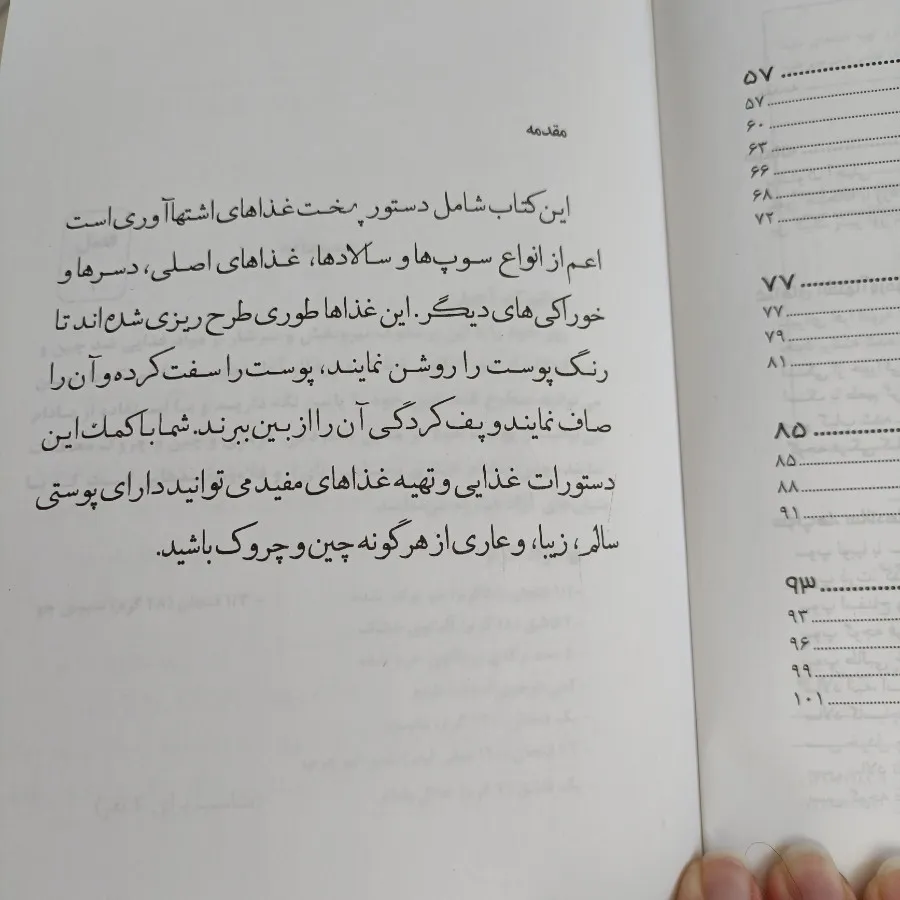 مقدمه
این کتاب شامل دستور پخت غذاهای اشتهاآوری است
اعم از انواع سوپ‌ها و سالادها، غذاهای اصلی، دسرها و
خوراکی‌های دیگر. این غذاها طوری طرح ریزی شده‌اند تا
رنگ پوست را روشن نمایند، پوست را سفت کرده و آن را
صاف نمایند و پف کردگی آن را از بین ببرند. شما با کمک این
دستورات غذایی و تهیه غذاهای مفید می‌توانید دارای پوستی
سالم، زیبا، و عاری از هرگونه چین و چروک باشید.
۵۷
۵۷
۶۰
۶۳
۶۶
۶۸
۷۲
۷۷
۷۷
۷۹
۸۱
۸۵
۸۵
۸۸
۹۱
۹۳
۹۳
۹۶
۹۹
۱۰۱